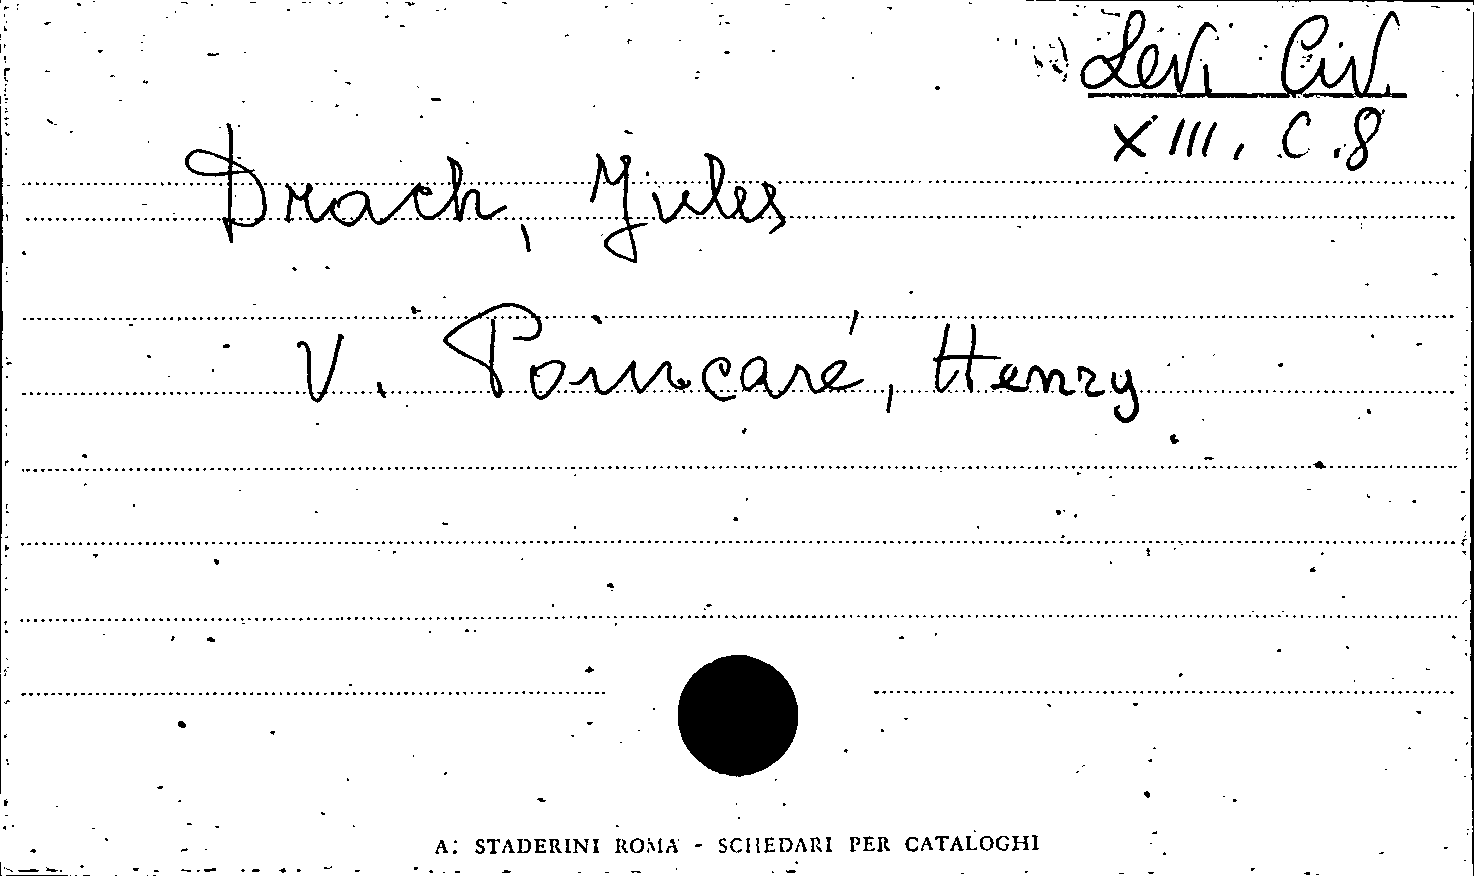 Levi Civ.
XIII. C.8
Drach, Jules
V. Poincaré, Henry
A. STADERINI ROMA - SCHEDARI PER CATALOGHI